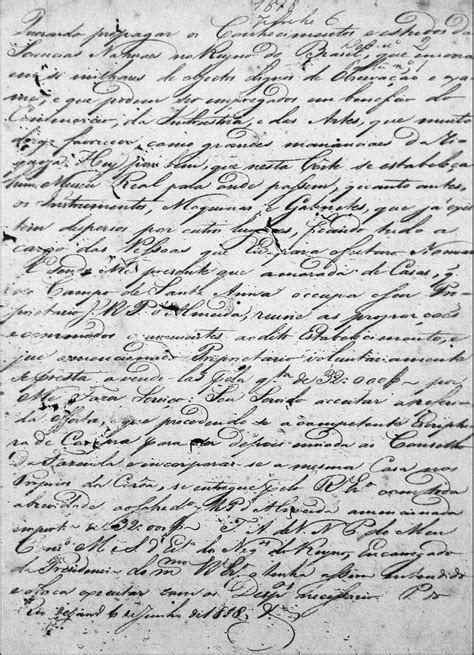 1818
Junho 6
Querendo propagar os Conhecimentos e estudos das
Sciencias Naturaes no Reyno do Brasil, que encerra
em si milhares de objectos dignos de Observação e exa-
me, e que podem ser empregados em beneficio do
Commercio, da Industria, e das Artes, que muito
favorecer, como grandes mananciaes da Ri-
queza: Hey por bem, que nesta Corte se estabeleça
hum Museu Real para onde passem, quanto antes,
os Instrumentos, Maquinas, e Gabinetes, que já exis-
tem dispersos por outros lugares, ficando tudo a
cargo das Pessoas que Eu para o futuro Nomear
E sendo-Me presente que a morada de Casas, q̃
no Campo de Santa Anna occupa o seu Pro-
prietario J. R. P. d'Almeida, reune as proporçoes
e commodos ao dito Estabelecimento, e
que o mencionado Proprietario voluntariamente
se presta a vende-las pela q.ta de 32:000$ por
Me Fazer Serviço: Sou Servido acceitar a referi-
da offerta, e que procedendo-se a competente Escriptu-
ra de Compra para ser depois enviada ao Conselho
da Fazenda e incorporar-se a mesma Casa nos
Proprios da Coroa, se entregue pelo R. Er.o com toda
a brevidade ao sobredito a mencionada
import.a de 32:000$ T. A. de V. N. P. do Meu
Cons.o M. e S. d'Est.o do Neg.os do Reyno, Encarregado
da Presidencia do m.mo R. Er.o tenha assim entendido
e o faça executar com os Desp.os necessarios P.
Rio de Jan.o 6 de Junho de 1818